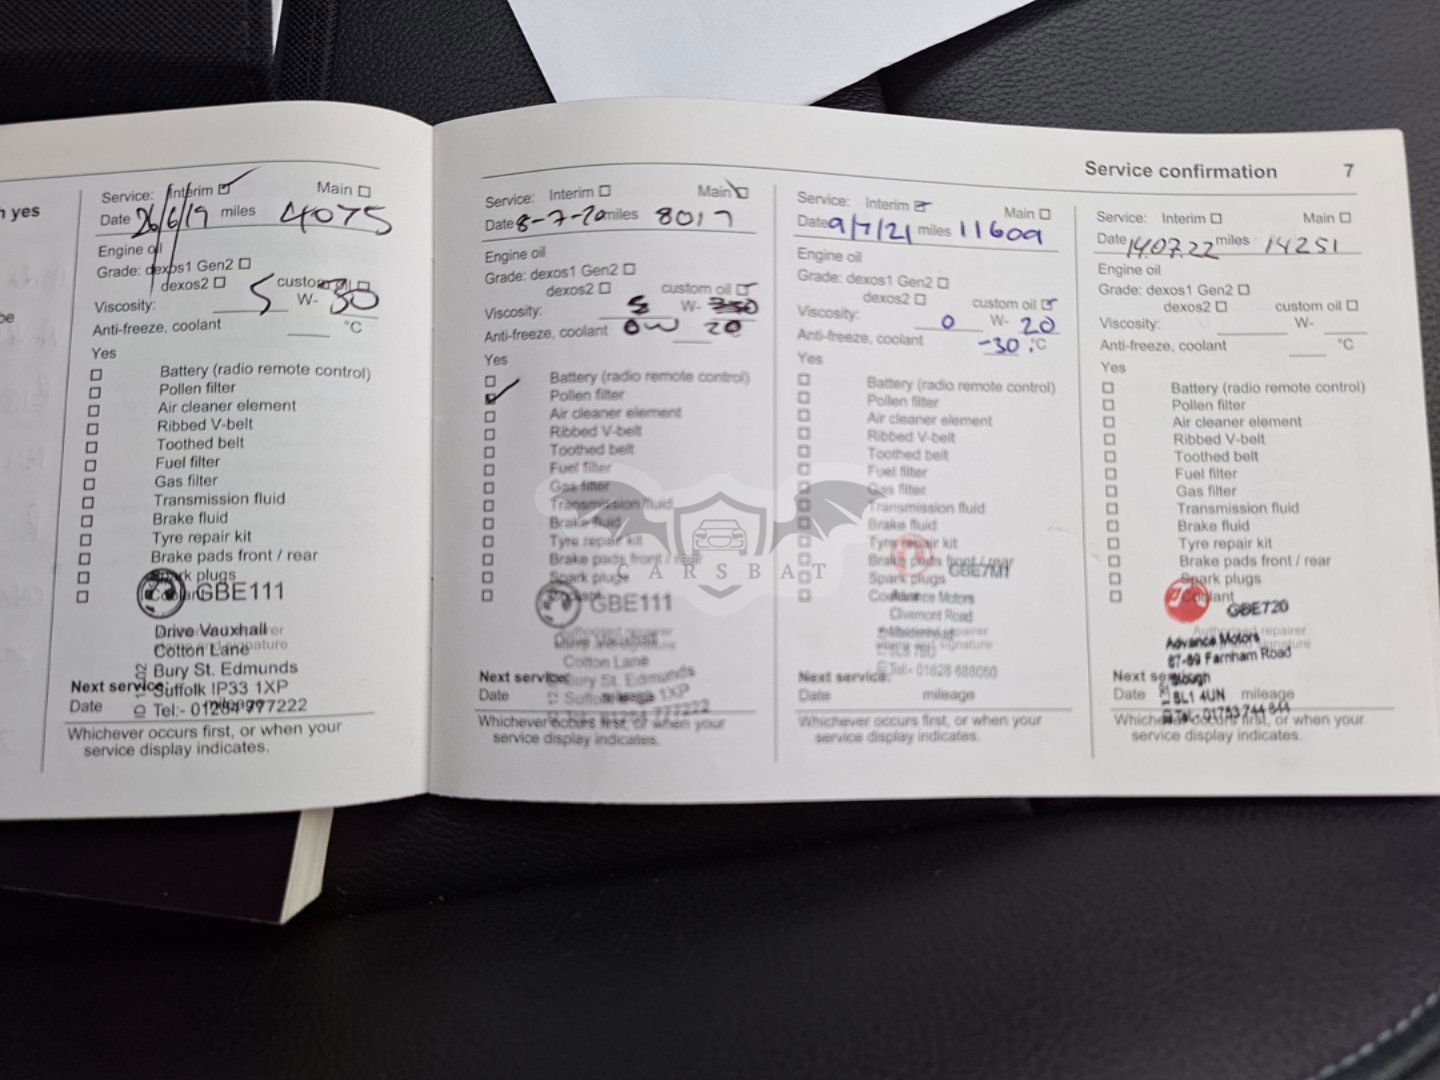 Service confirmation 7
h yes
be
Service: Interim Main
Date 26/6/19 miles 4075
Engine oil
Grade: dexos1 Gen2
dexos2 custom oil
Viscosity: 5 W- 30
Anti-freeze, coolant °C
Yes
Battery (radio remote control)
Pollen filter
Air cleaner element
Ribbed V-belt
Toothed belt
Fuel filter
Gas filter
Transmission fluid
Brake fluid
Tyre repair kit
Brake pads front / rear
Spark plugs
Coolant GBE111
Drive Vauxhall
Cotton Lane
Bury St. Edmunds
Next service Suffolk IP33 1XP
Date Tel:- 01284 777222
Whichever occurs first, or when your
service display indicates.
Service: Interim Main
Date 8-7-20 miles 8017
Engine oil
Grade: dexos1 Gen2
dexos2 custom oil
Viscosity: 5 W-
Anti-freeze, coolant 0W 20
Yes
Battery (radio remote control)
Pollen filter
Air cleaner element
Ribbed V-belt
Toothed belt
Fuel filter
Gas filter
Transmission fluid
Brake fluid
Tyre repair kit
Brake pads front / rear
Spark plugs
Coolant GBE111
Drive Vauxhall
Cotton Lane
Next service Bury St. Edmunds
Date Suffolk 1XP
777222
Whichever occurs first, or when your
service display indicates.
Service: Interim Main
Date 9/7/21 miles 11609
Engine oil
Grade: dexos1 Gen2
dexos2 custom oil
Viscosity: 0 W- 20
Anti-freeze, coolant -30 °C
Yes
Battery (radio remote control)
Pollen filter
Air cleaner element
Ribbed V-belt
Toothed belt
Fuel filter
Gas filter
Transmission fluid
Brake fluid
Tyre repair kit
Brake pads front / rear
Spark plugs GBE7M1
Coolant Advance Motors
Clivemont Road
Maidenhead
Next service: Tel:- 01628 688060
Date mileage
Whichever occurs first, or when your
service display indicates.
Service: Interim Main
Date 14.07.22 miles 14251
Engine oil
Grade: dexos1 Gen2
dexos2 custom oil
Viscosity: W-
Anti-freeze, coolant °C
Yes
Battery (radio remote control)
Pollen filter
Air cleaner element
Ribbed V-belt
Toothed belt
Fuel filter
Gas filter
Transmission fluid
Brake fluid
Tyre repair kit
Brake pads front / rear
Spark plugs
Coolant GBE720
Authorised repairer
Advance Motors
67-69 Farnham Road
Next service Slough
Date SL1 4UN mileage
Tel. 01753 744 844
Whichever occurs first, or when your
service display indicates.
CARSBAT